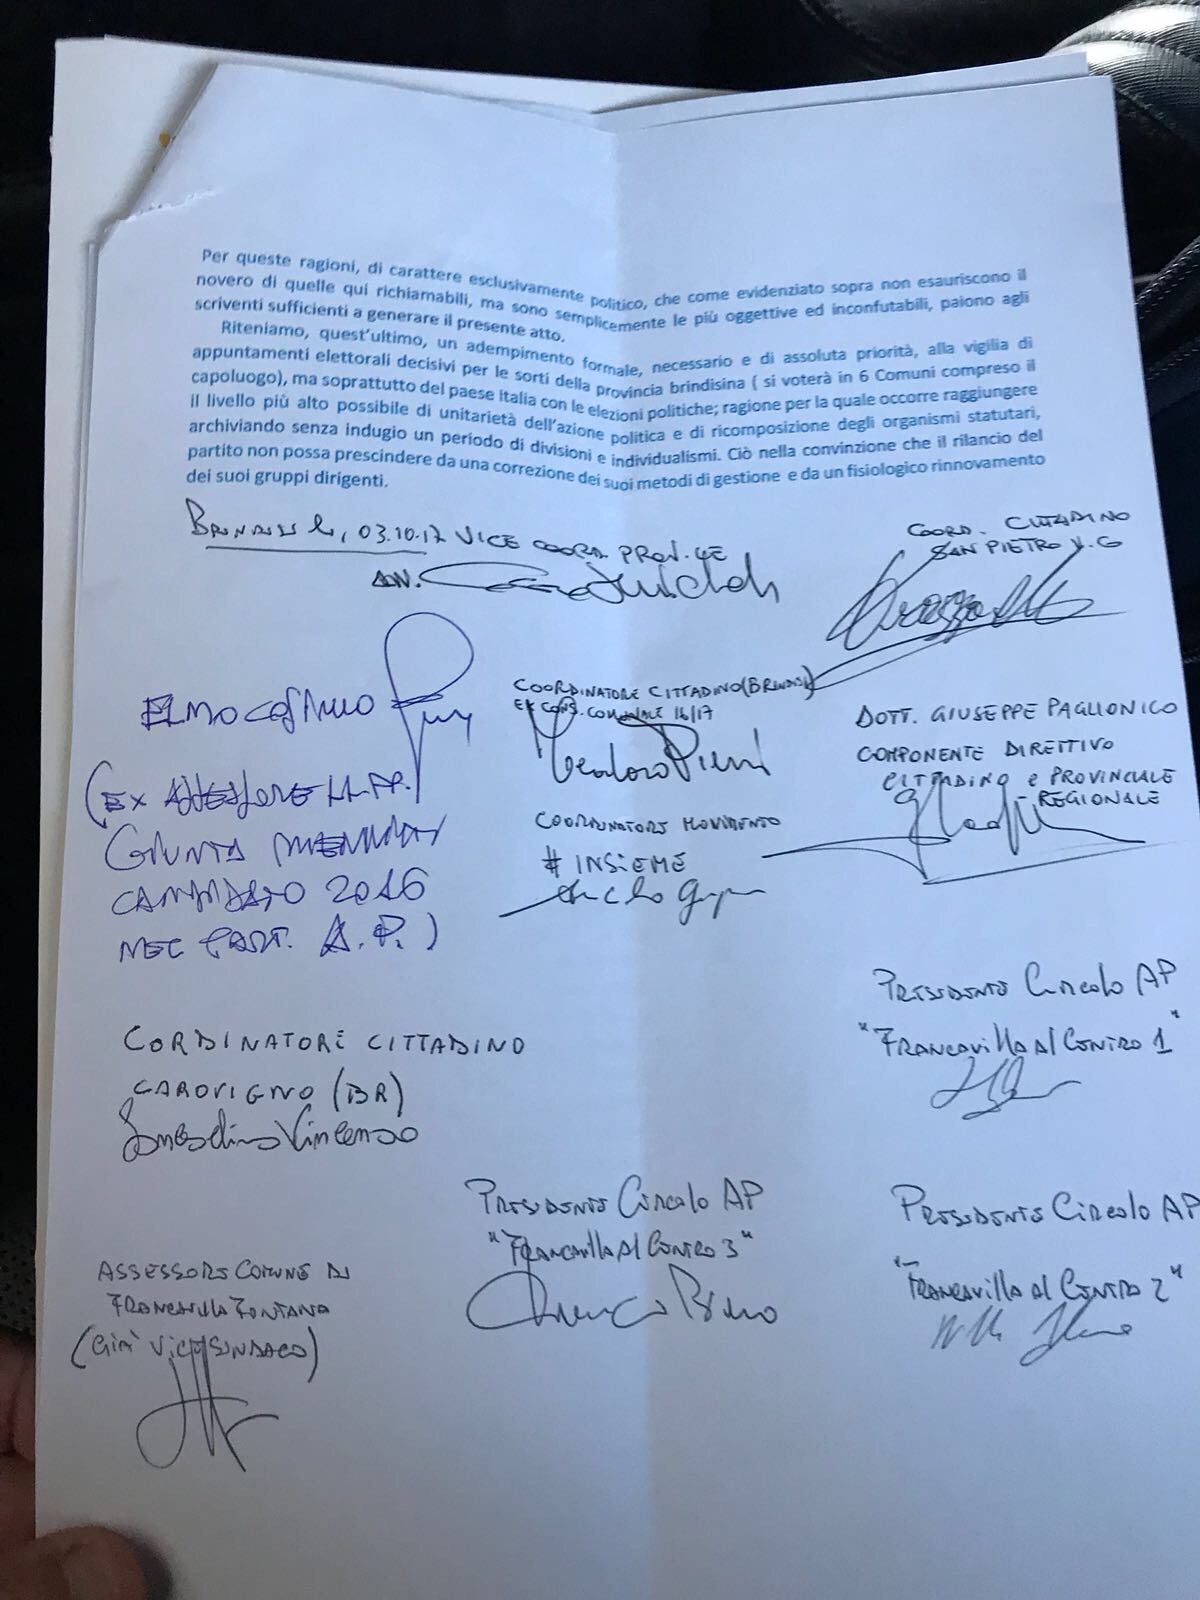 Per queste ragioni, di carattere esclusivamente politico, che come evidenziato sopra non esauriscono il
novero di quelle qui richiamabili, ma sono semplicemente le più oggettive ed inconfutabili, paiono agli
scriventi sufficienti a generare il presente atto.
Riteniamo, quest'ultimo, un adempimento formale, necessario e di assoluta priorità, alla vigilia di
appuntamenti elettorali decisivi per le sorti della provincia brindisina ( si voterà in 6 Comuni compreso il
capoluogo), ma soprattutto del paese Italia con le elezioni politiche; ragione per la quale occorre raggiungere
il livello più alto possibile di unitarietà dell'azione politica e di ricomposizione degli organismi statutari,
archiviando senza indugio un periodo di divisioni e individualismi. Ciò nella convinzione che il rilancio del
partito non possa prescindere da una correzione dei suoi metodi di gestione e da un fisiologico rinnovamento
dei suoi gruppi dirigenti.
BRINDISI lì, 03.10.17 VICE COORD. PROV.LE
COORD. CITTADINO
SAN PIETRO V.CO
ELMO COSIMO
(EX ASSESSORE LL.PP.
GIUNTA MENNITTI
CANDIDATO 2016
NEL PART. A.P.)
COORDINATORE CITTADINO (BRINDISI)
EX CONS. COMUNALE 16/17
Teodoro Pierri
COORDINATORE MOVIMENTO
# INSIEME
DOTT. GIUSEPPE PAGLIONICO
COMPONENTE DIRETTIVO
CITTADINO e PROVINCIALE
REGIONALE
PRESIDENTE CIRCOLO AP
"FRANCAVILLA AL CENTRO 1"
CORDINATORE CITTADINO
CAROVIGNO (BR)
Vincenzo
PRESIDENTE CIRCOLO AP
"FRANCAVILLA AL CENTRO 3"
PRESIDENTE CIRCOLO AP
"FRANCAVILLA AL CENTRO 2"
ASSESSORE COMUNE DI
FRANCAVILLA FONTANA
(GIA' VICESINDACO)